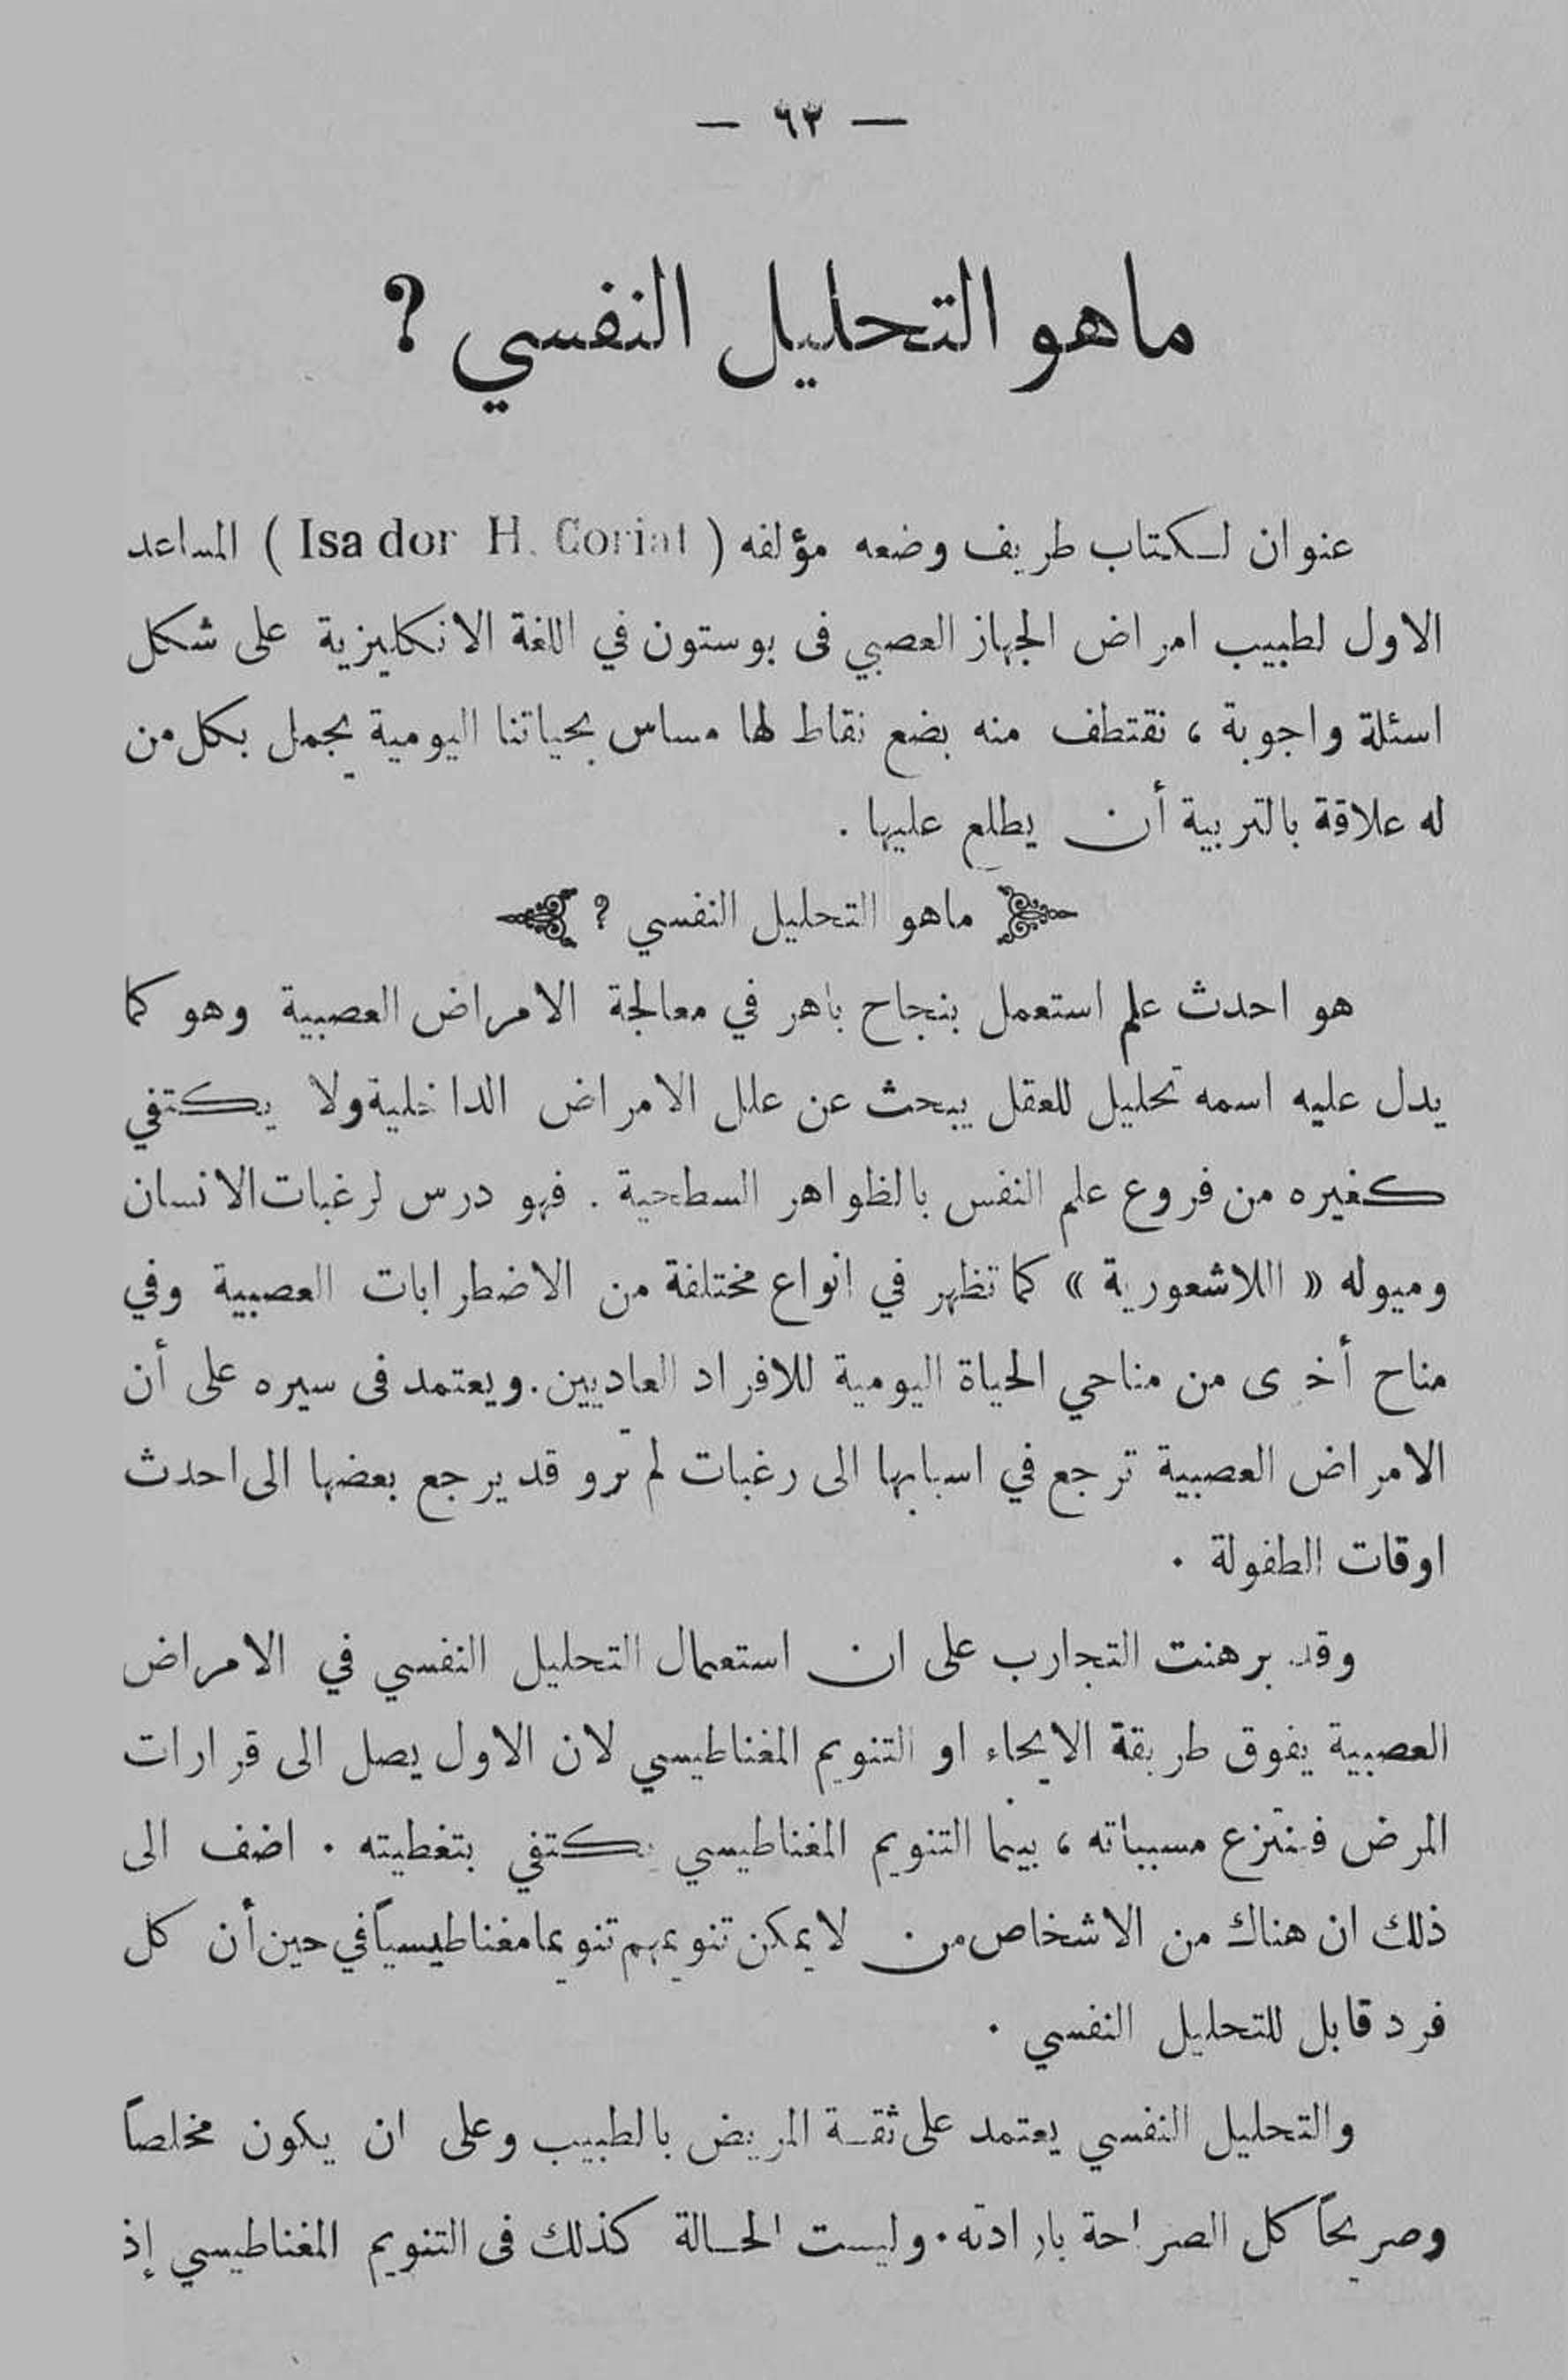 — ٦٣ —
ماهو التحليل النفسي ؟
عنوان لكتاب طريف وضعه مؤلفه ( Isador H. Coriat ) المساعد
الاول لطبيب امراض الجهاز العصبي فى بوستون في اللغة الانكليزية على شكل
اسئلة واجوبة ، نقتطف منه بضع نقاط لها مساس بحياتنا اليومية يجمل بكل من
له علاقة بالتربية أن يطلع عليها .
ماهو التحليل النفسي ؟
هو احدث علم استعمل بنجاح باهر في معالجة الامراض العصبية وهو كما
يدل عليه اسمه تحليل للعقل يبحث عن علل الامراض الداخلية ولا يكتفي
كغيره من فروع علم النفس بالظواهر السطحية . فهو درس لرغبات الانسان
وميوله « اللاشعورية » كما تظهر في انواع مختلفة من الاضطرابات العصبية وفي
مناح أخرى من مناحي الحياة اليومية للافراد العاديين . ويعتمد فى سيره على أن
الامراض العصبية ترجع في اسبابها الى رغبات لم ترو وقد يرجع بعضها الى احدث
اوقات الطفولة .
وقد برهنت التجارب على ان استعمال التحليل النفسي في الامراض
العصبية يفوق طريقة الايحاء او التنويم المغناطيسي لان الاول يصل الى قرارات
المرض فينتزع مسبباته ، بينما التنويم المغناطيسي يكتفي بتغطيته . اضف الى
ذلك ان هناك من الاشخاص من لا يمكن تنويمهم تنويما مغناطيسياً في حين أن كل
فرد قابل للتحليل النفسي .
والتحليل النفسي يعتمد على ثقة المريض بالطبيب وعلى ان يكون مخلصاً
وصريحاً كل الصراحة بارادته . وليست الحالة كذلك فى التنويم المغناطيسي إذ